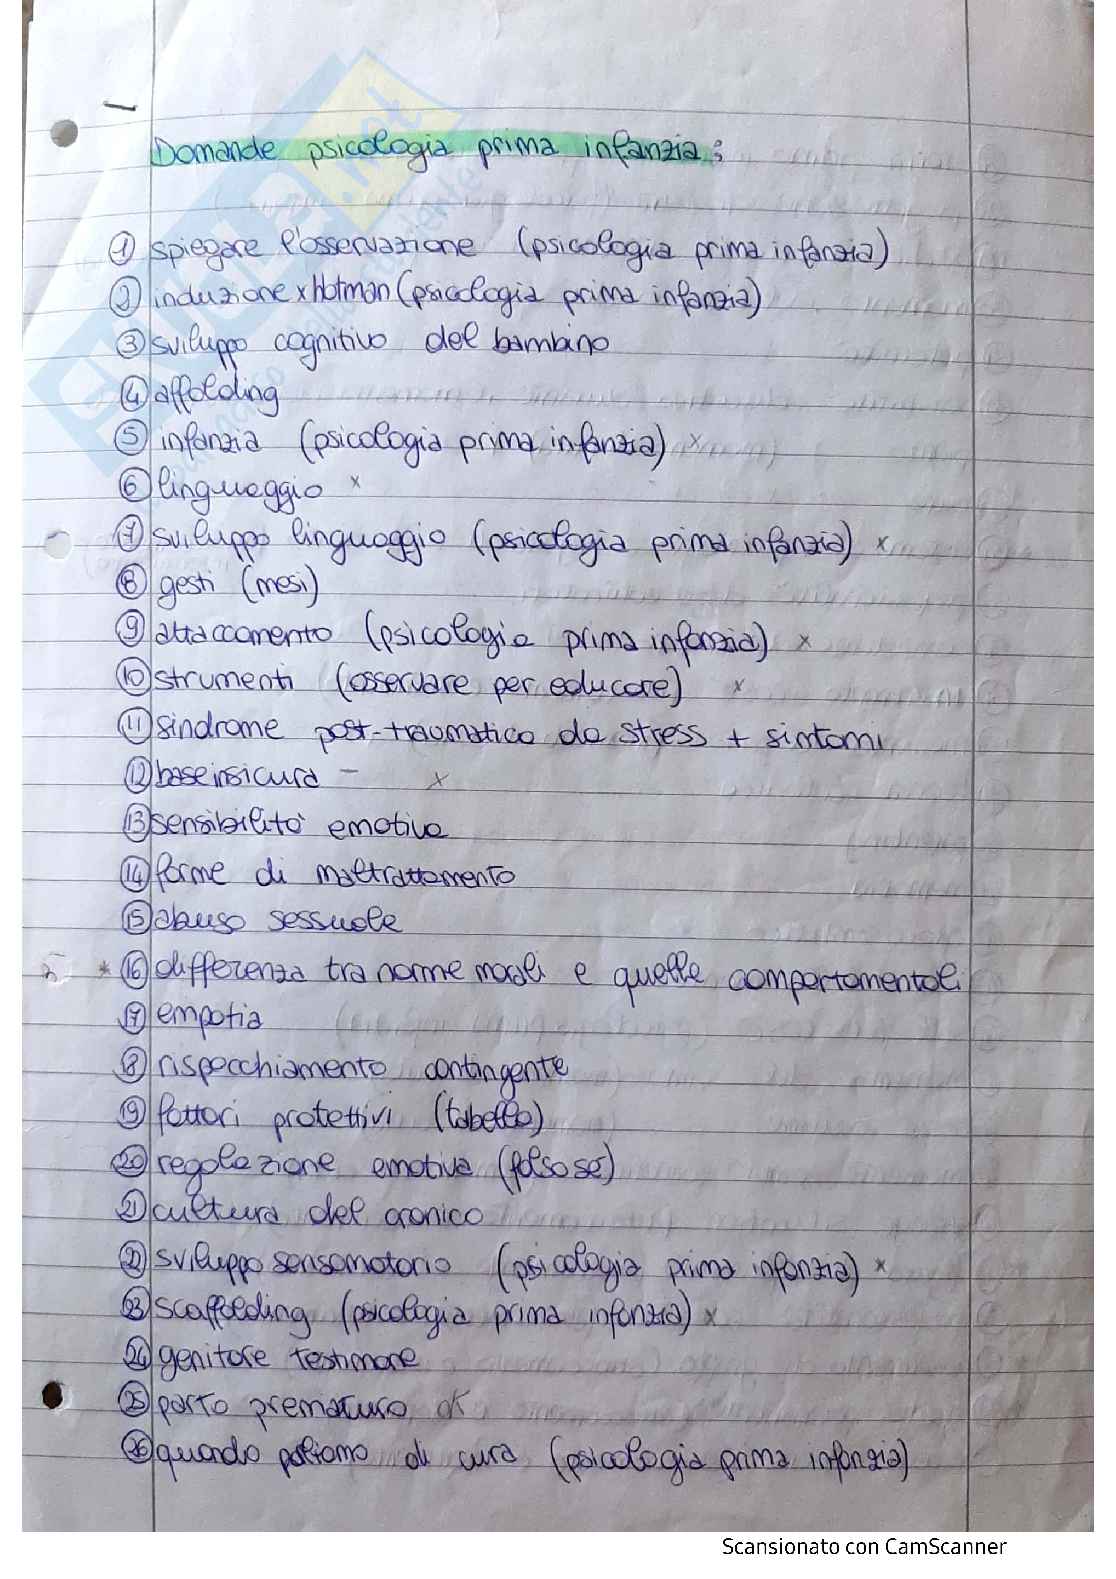 Domande psicologia prima infanzia:
① spiegare l'osservazione (psicologia prima infanzia)
② induzione x hofman (psicologia prima infanzia)
③ sviluppo cognitivo del bambino
④ affolding
⑤ infanzia (psicologia prima infanzia) x
⑥ linguaggio x
⑦ sviluppo linguaggio (psicologia prima infanzia) x
⑧ gesti (mesi)
⑨ attaccamento (psicologia prima infanzia) x
⑩ strumenti (osservare per educare) x
⑪ sindrome post-traumatica da stress + sintomi
⑫ base insicura - x
⑬ sensibilità emotiva
⑭ forme di maltrattamento
⑮ abuso sessuale
* ⑯ differenza tra norme morali e quelle comportamentali
⑰ empatia
⑱ rispecchiamento contingente
⑲ fattori protettivi (tabella)
⑳ regolazione emotiva (falso sé)
㉑ cultura del cronico
㉒ sviluppo sensomotorio (psicologia prima infanzia) x
㉓ scaffolding (psicologia prima infanzia) x
㉔ genitore testimone
㉕ parto prematuro ok
㉖ quando parliamo di cura (psicologia prima infanzia)
Scansionato con CamScanner